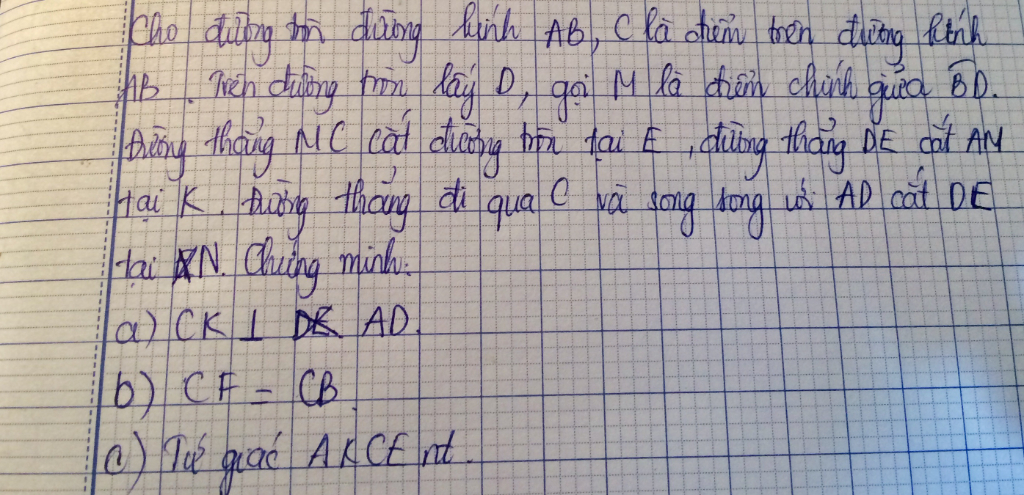 Cho đường tròn đường kính AB, C là điểm trên đường kính
AB. Trên đường tròn lấy D, gọi M là điểm chính giữa BD.
Đường thẳng MC cắt đường tròn tại E, đường thẳng DE cắt AM
tại K. Đường thẳng đi qua C và song song với AD cắt DE
tại N. Chứng minh:
a) CK ⊥ AD.
b) CF = CB
c) Tứ giác AKCE nt.